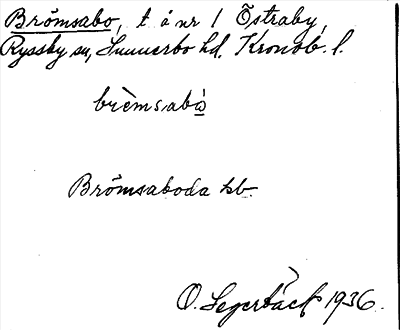 Brömsabo, t. å nr 1 Östraby,
Ryssby sn, Sunnerbo hd. Kronob. l.
brèmsabò
Brömsaboda kb
O. Legerbäck 1936.